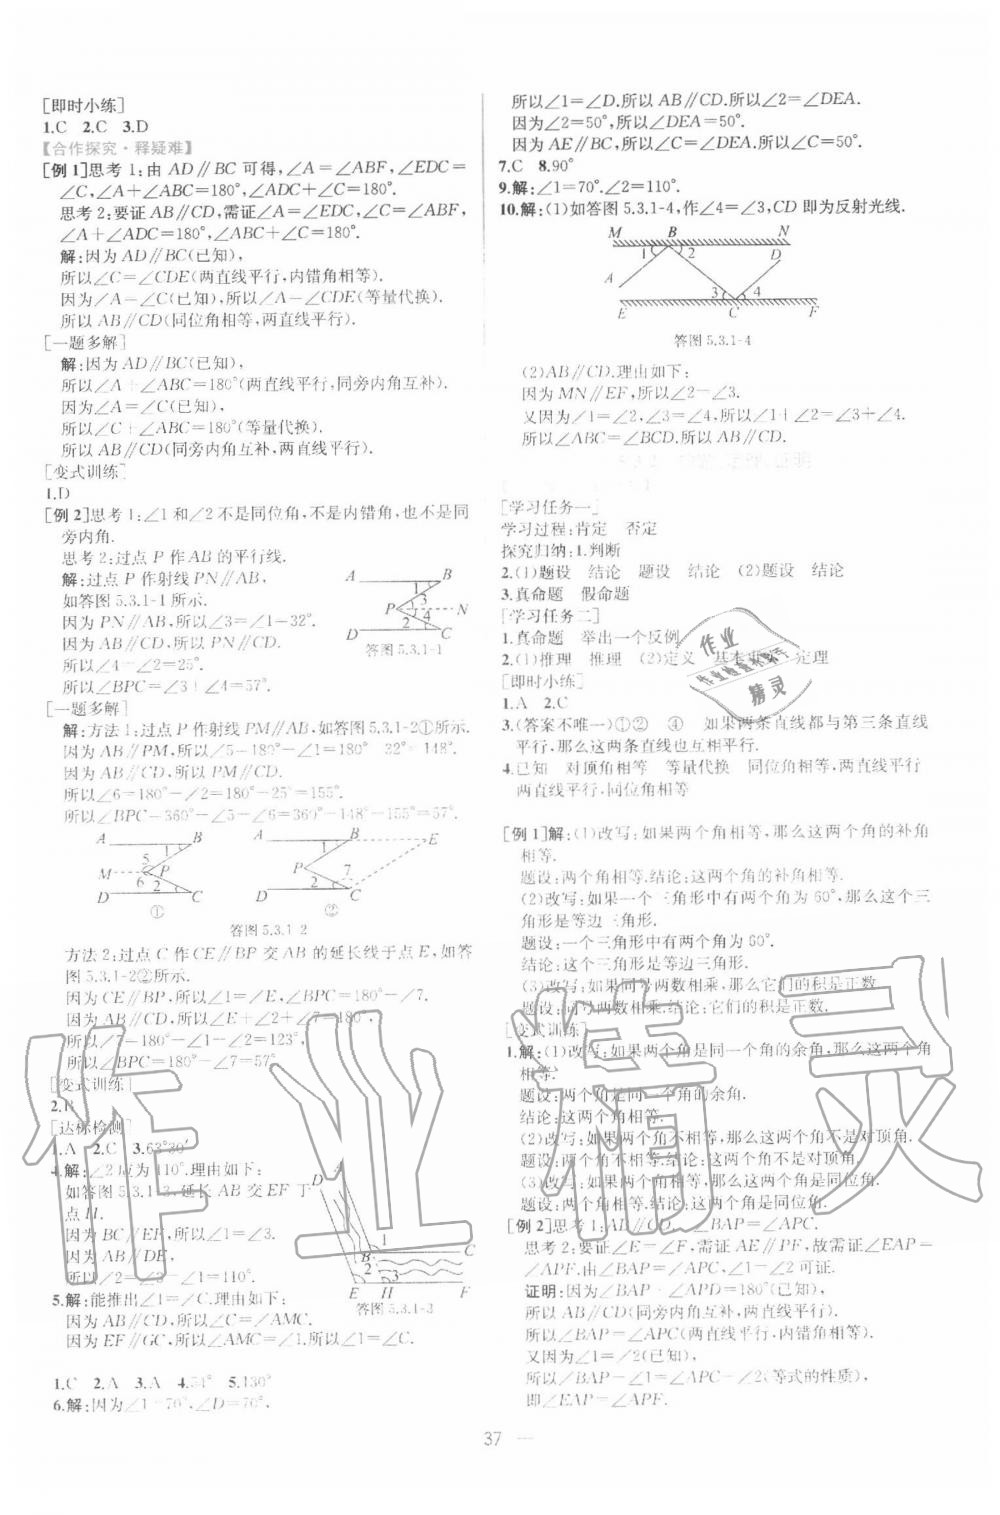 [即时小练]
1.C 2.C 3.D
【合作探究·释疑难】
[例 1]思考 1:由 AD∥BC 可得,∠A=∠ABF,∠EDC=
∠C,∠A+∠ABC=180°,∠ADC+∠C=180°.
思考 2:要证 AB∥CD,需证∠A=∠EDC,∠C=∠ABF,
∠A+∠ADC=180°,∠C+∠ABC=180°.
解:因为 AD∥BC(已知),
所以∠C=∠CDE(两直线平行,内错角相等).
因为∠A=∠C(已知),所以∠A=∠CDE(等量代换).
所以 AB∥CD(同位角相等,两直线平行).
[一题多解]
解:因为 AD∥BC(已知),
所以∠A+∠ABC=180°(两直线平行,同旁内角互补).
因为∠A=∠C(已知),
所以∠C+∠ABC=180°(等量代换).
所以 AB∥CD(同旁内角互补,两直线平行).
[变式训练]
1.D
[例 2]思考 1:∠1 和∠2 不是同位角,不是内错角,也不是同
旁内角.
思考 2:过点 P 作 AB 的平行线.
解:过点 P 作射线 PN∥AB,
如答图 5.3.1-1 所示.
因为 PN∥AB,所以∠3=∠1=32°.
因为 AB∥CD,所以 PN∥CD.
所以∠4=∠2=25°.
所以∠BPC=∠3+∠4=57°.
A B
1
3
P N
2 4
D C
答图 5.3.1-1
[一题多解]
解:方法 1:过点 P 作射线 PM∥AB,如答图 5.3.1-2①所示.
因为 AB∥PM,所以∠5=180°-∠1=180°-32°=148°.
因为 AB∥CD,所以 PM∥CD.
所以∠6=180°-∠2=180°-25°=155°.
所以∠BPC=360°-∠5-∠6=360°-148°-155°=57°.
A B
1
5
M P
6 2
D C
①
A B E
1
P 7
2
D C
②
答图 5.3.1-2
方法 2:过点 C 作 CE∥BP 交 AB 的延长线于点 E,如答
图 5.3.1-2②所示.
因为 CE∥BP,所以∠1=∠E,∠BPC=180°-∠7.
因为 AB∥CD,所以∠E+∠2+∠7=180°,
所以∠7=180°-∠1-∠2=123°,
所以∠BPC=180°-∠7=57°.
[变式训练]
2.B
[达标检测]
1.A 2.C 3.63°30′
4.解:∠2 应为 110°.理由如下:
如答图 5.3.1-3,延长 AB 交 EF 于
点 H.
因为 BC∥EF,所以∠1=∠3.
因为 AB∥DE,
所以∠2=∠3=∠1=110°.
D A
B 1 C
2 3
E H F
答图 5.3.1-3
5.解:能推出∠1=∠C.理由如下:
因为 AB∥CD,所以∠C=∠AMC.
因为 EF∥GC,所以∠AMC=∠1,所以∠1=∠C.
1.C 2.A 3.A 4.54° 5.130°
6.解:因为∠1=70°,∠D=70°,
所以∠1=∠D.所以 AB∥CD.所以∠2=∠DEA.
因为∠2=50°,所以∠DEA=50°.
因为 AE∥BC,所以∠C=∠DEA=50°.
7.C 8.90°
9.解:∠1=70°.∠2=110°.
10.解:(1)如答图 5.3.1-4,作∠4=∠3,CD 即为反射光线.
M B N
1 2
A D
3 4
E C F
答图 5.3.1-4
(2)AB∥CD.理由如下:
因为 MN∥EF,所以∠2=∠3.
又因为∠1=∠2,∠3=∠4,所以∠1+∠2=∠3+∠4.
所以∠ABC=∠BCD.所以 AB∥CD.
[学习任务一]
学习过程:肯定 否定
探究归纳:1.判断
2.(1)题设 结论 题设 结论 (2)题设 结论
3.真命题 假命题
[学习任务二]
1.真命题 举出一个反例
2.(1)推理 推理 (2)定义 基本事实 定理
[即时小练]
1.A 2.C
3.(答案不唯一)①② ④ 如果两条直线都与第三条直线
平行,那么这两条直线也互相平行.
4.已知 对顶角相等 等量代换 同位角相等,两直线平行
两直线平行,同位角相等
[例 1]解:(1)改写:如果两个角相等,那么这两个角的补角
相等.
题设:两个角相等.结论:这两个角的补角相等.
(2)改写:如果一个三角形中有两个角为 60°,那么这个三
角形是等边三角形.
题设:一个三角形中有两个角为 60°.
结论:这个三角形是等边三角形.
(3)改写:如果同号两数相乘,那么它们的积是正数.
题设:同号两数相乘.结论:它们的积是正数.
[变式训练]
1.解:(1)改写:如果两个角是同一个角的余角,那么这两个角
相等.
题设:两个角是同一个角的余角.
结论:这两个角相等.
(2)改写:如果两个角不相等,那么这两个角不是对顶角.
题设:两个角不相等.结论:这两个角不是对顶角.
(3)改写:如果两个角相等,那么这两个角是同位角.
题设:两个角相等.结论:这两个角是同位角.
[例 2]思考 1:AB∥CD,∠BAP=∠APC.
思考 2:要证∠E=∠F,需证 AE∥PF,故需证∠EAP=
∠APF.由∠BAP=∠APC,∠1=∠2 可证.
证明:因为∠BAP+∠APD=180°(已知),
所以 AB∥CD(同旁内角互补,两直线平行).
所以∠BAP=∠APC(两直线平行,内错角相等).
又因为∠1=∠2(已知),
所以∠BAP-∠1=∠APC-∠2(等式的性质),
即∠EAP=∠APF.
37
作业精灵
作业
作业检查小帮手
精灵